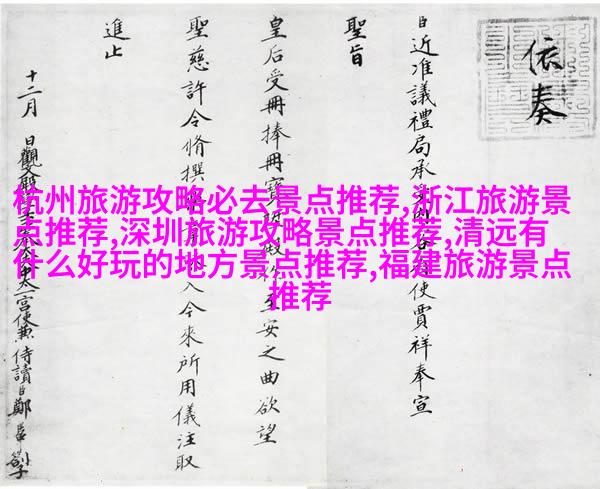 依奏
臣近准議禮局承受
使賈祥奉宣
聖旨
皇后受冊捧冊寶
至安之曲欲望
聖慈許令脩撰
入今來所用儀注取
進止
十二月 日觀文殿
太一宮使兼侍讀臣鄭
劄子
杭州旅游攻略必去景点推荐,浙江旅游景
点推荐,深圳旅游攻略景点推荐,清远有
什么好玩的地方景点推荐,福建旅游景点
推荐